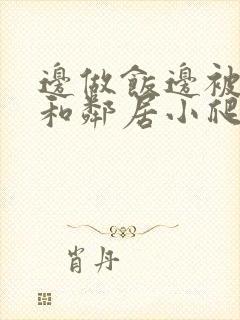 邊做飯邊被
和鄰居小爬
肖丹